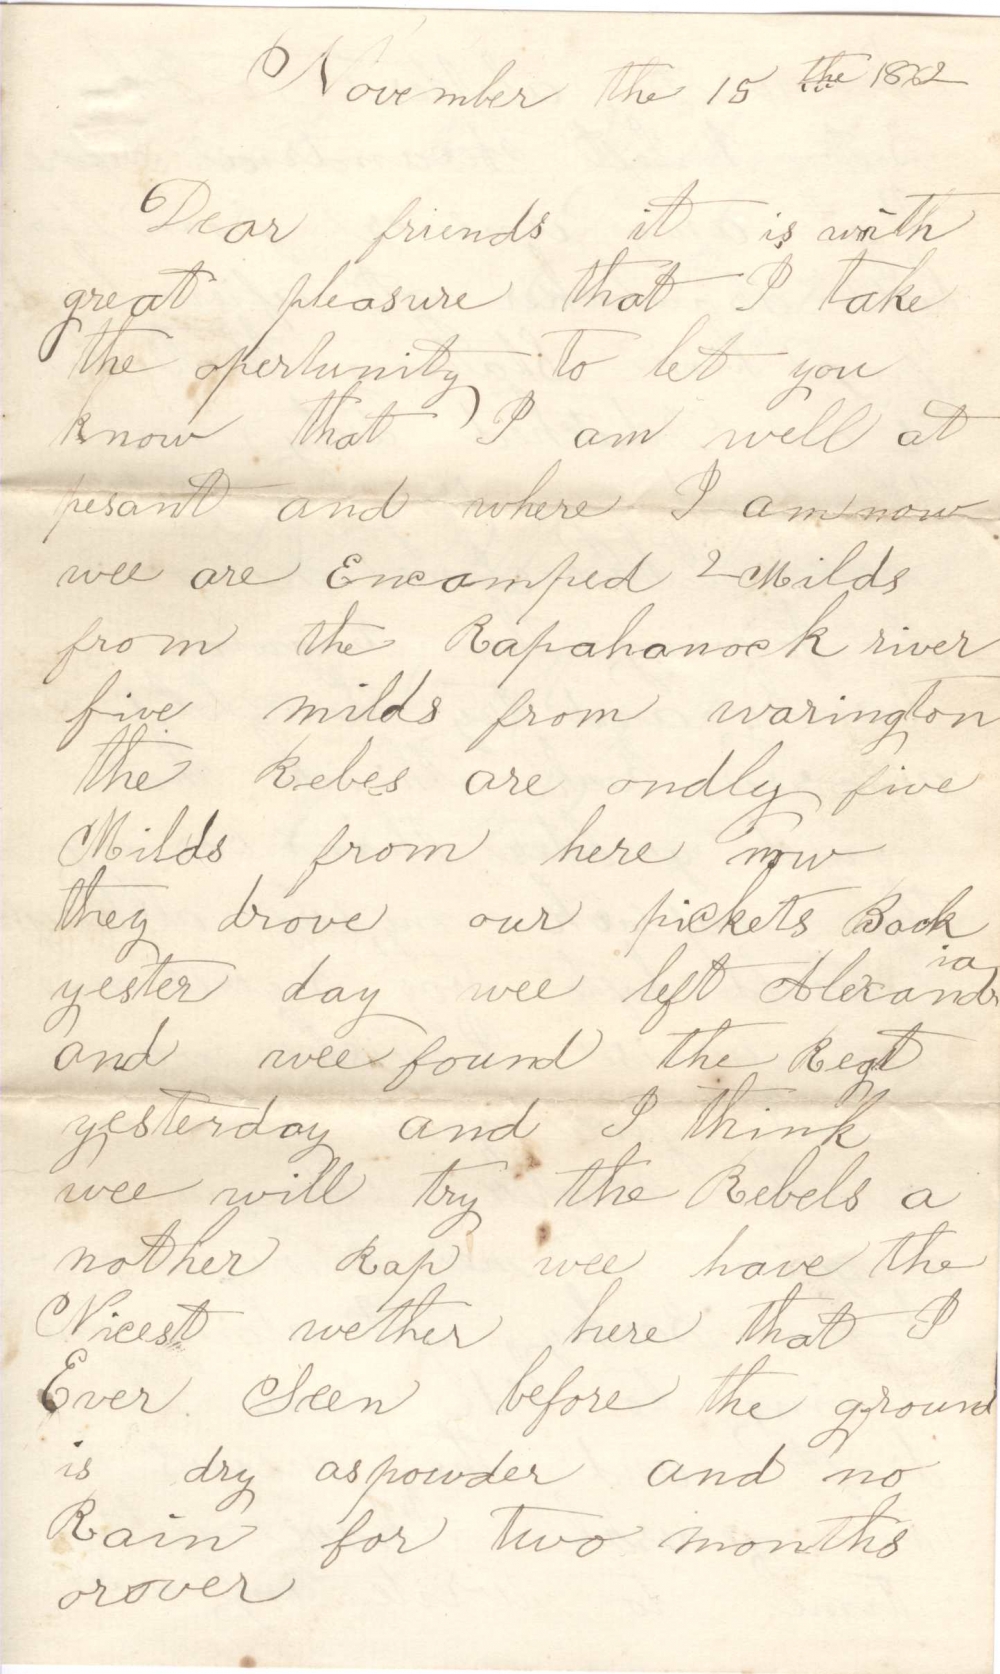 November the 15 the 1862
Dear friends it is with
great pleasure that I take
the opertunity to let you
know that I am well at
pesant and where I am now
wee are Encamped 2 Milds
from the Rapahanock river
five milds from warington
the Rebes are ondly five
Milds from here now
they drove our pickets Back
yester day wee left Alexandria
and wee found the Regt
yesterday and I think
wee will try the Rebels a
nother Rap wee have the
Nicest wether here that I
Ever Seen before the ground
is dry aspowder and no
Rain for two months
orover